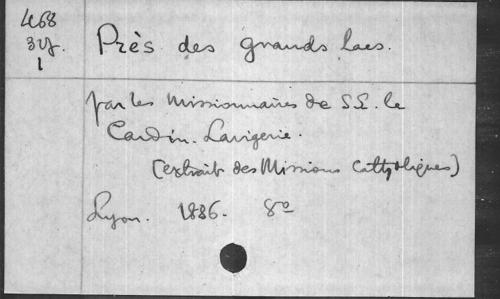 468
3y.
1
Près des grands lacs.
par les Missionnaires de S.E. le
Cardin. Lavigerie.
(extrait des Missions Catholiques)
Lyon. 1886. 8º